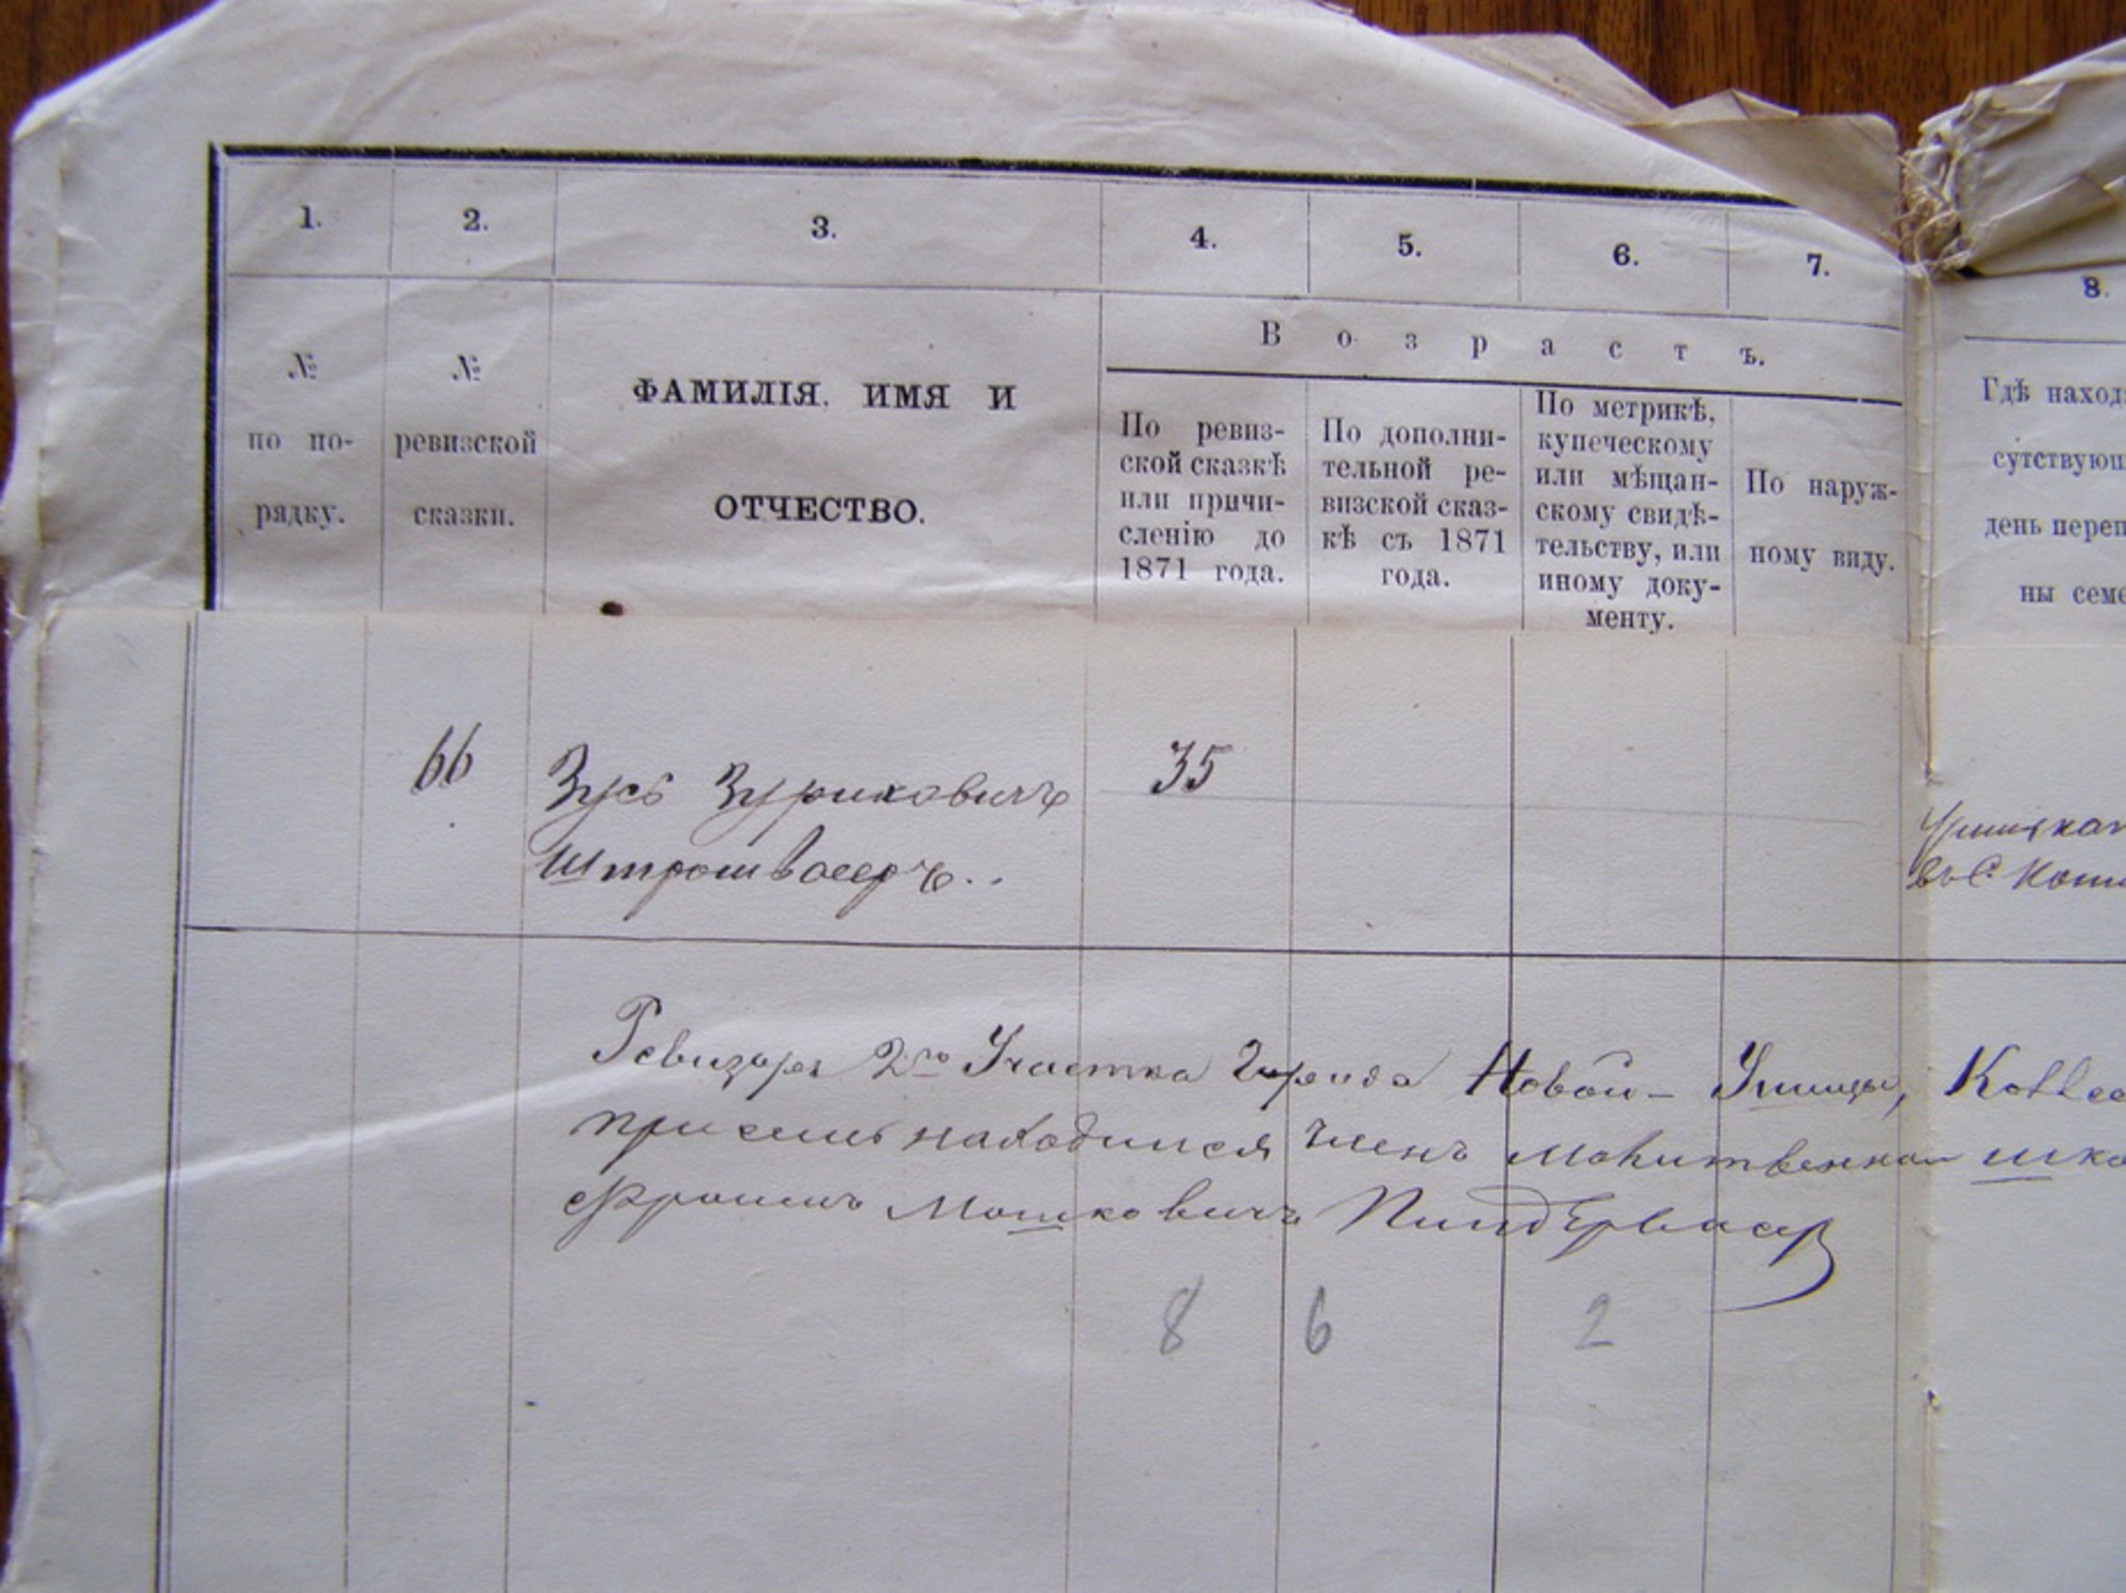 1. 2. 3. 4. 5. 6. 7. 8.
№ по по-
рядку.
№ ревизской
сказки.
ФАМИЛІЯ, ИМЯ И
ОТЧЕСТВО.
Возрастъ.
По ревиз-
ской сказкѣ
или причи-
сленію до
1871 года.
По дополни-
тельной ре-
визской сказ-
кѣ съ 1871
года.
По метрикѣ,
купеческому
или мѣщан-
скому свидѣ-
тельству, или
иному доку-
менту.
По наруж-
ному виду.
Гдѣ наход
сутствующ
день переп
ны семе
66 Зусь Зуриковичъ 35
Штрошвасеръ..
въ С.
Ревизоръ 2го Участка Города Новой-Ушицы,
при семъ находился Членъ Молитвенной шко
Фроимъ Мошковичъ
8 6 2